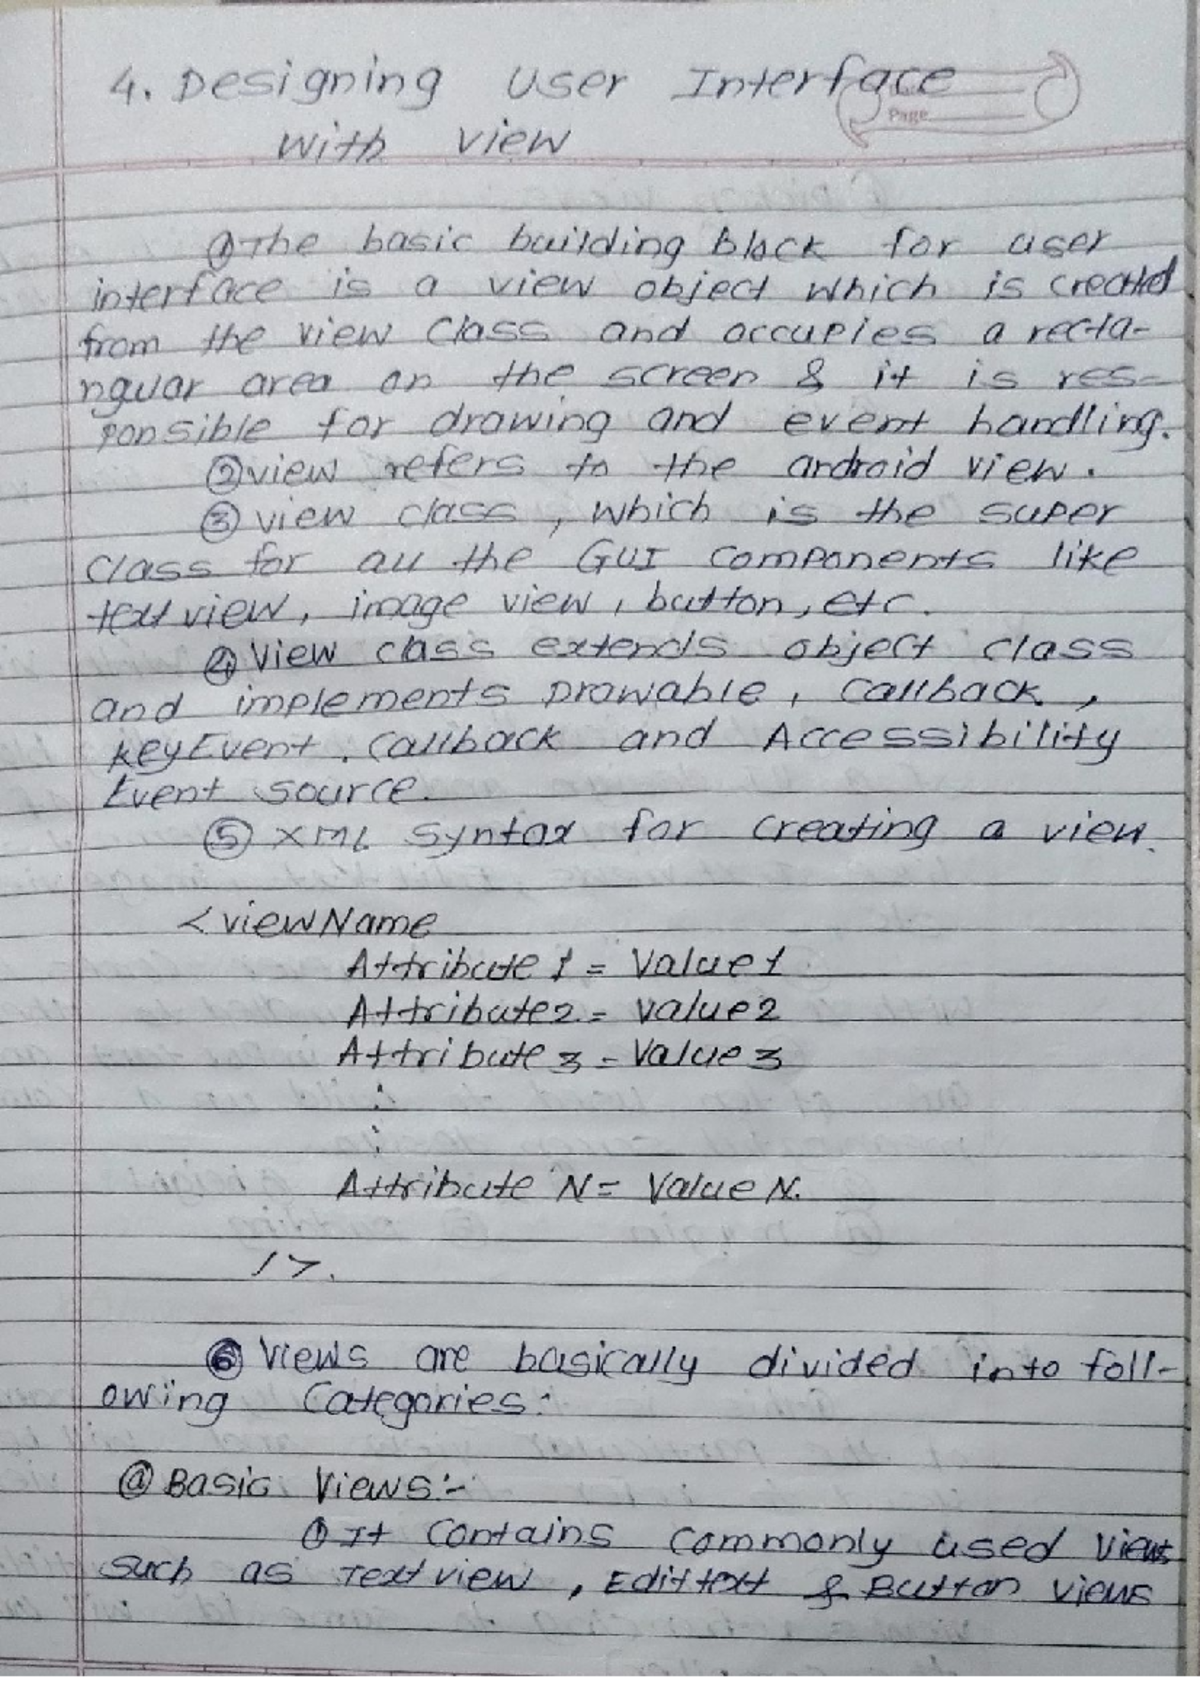 4. Designing User Interface
Page
With View
①The basic building block for user
interface is a view object which is created
from the view class and occupies a recta-
nguar area on the screen & it is res-
ponsible for drawing and event handling.
②view refers to the android view.
③ view class, which is the super
class for all the GUI components like
text view, image view, button, etc.
④ View class extends object class
and implements Drawable, callback,
keyEvent. callback and Accessibility
Event source.
⑤ XML Syntax for creating a view.
<viewName
Attribute 1 = Value1
Attribute2 = value2
Attribute 3 = Value 3
:
:
Attribute N = Value N.
/>.
⑥ Views are basically divided into foll-
owing Categories:
ⓐ Basic Views:-
① It Contains Commonly used Views
such as Text view, Edit text & Button views